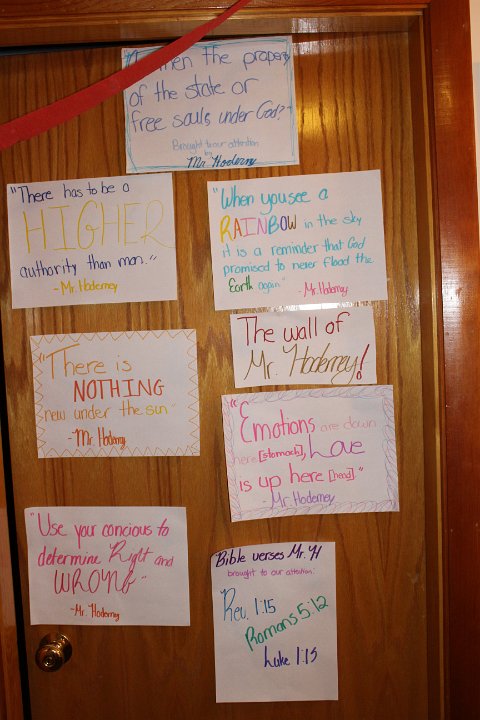 men the property
of the state or
free souls under God?"
Brought to our attention
by
Mr. Hoderny
"There has to be a
HIGHER
authority than man."
-Mr. Hoderney
"When you see a
RAINBOW in the sky
it is a reminder that God
promised to never flood the
Earth again"
- Mr. Hoderney
The wall of
Mr. Hoderney!
"There is
NOTHING
new under the sun"
-Mr. Hoderny
"Emotions are down
here [stomach], Love
is up here [head]."
- Mr. Hoderney
"Use your concious to
determine Right and
WRONG"
-Mr. Hoderney
Bible verses Mr. H
brought to our attention:
Rev. 1:15
Romans 5:12
Luke 1:15